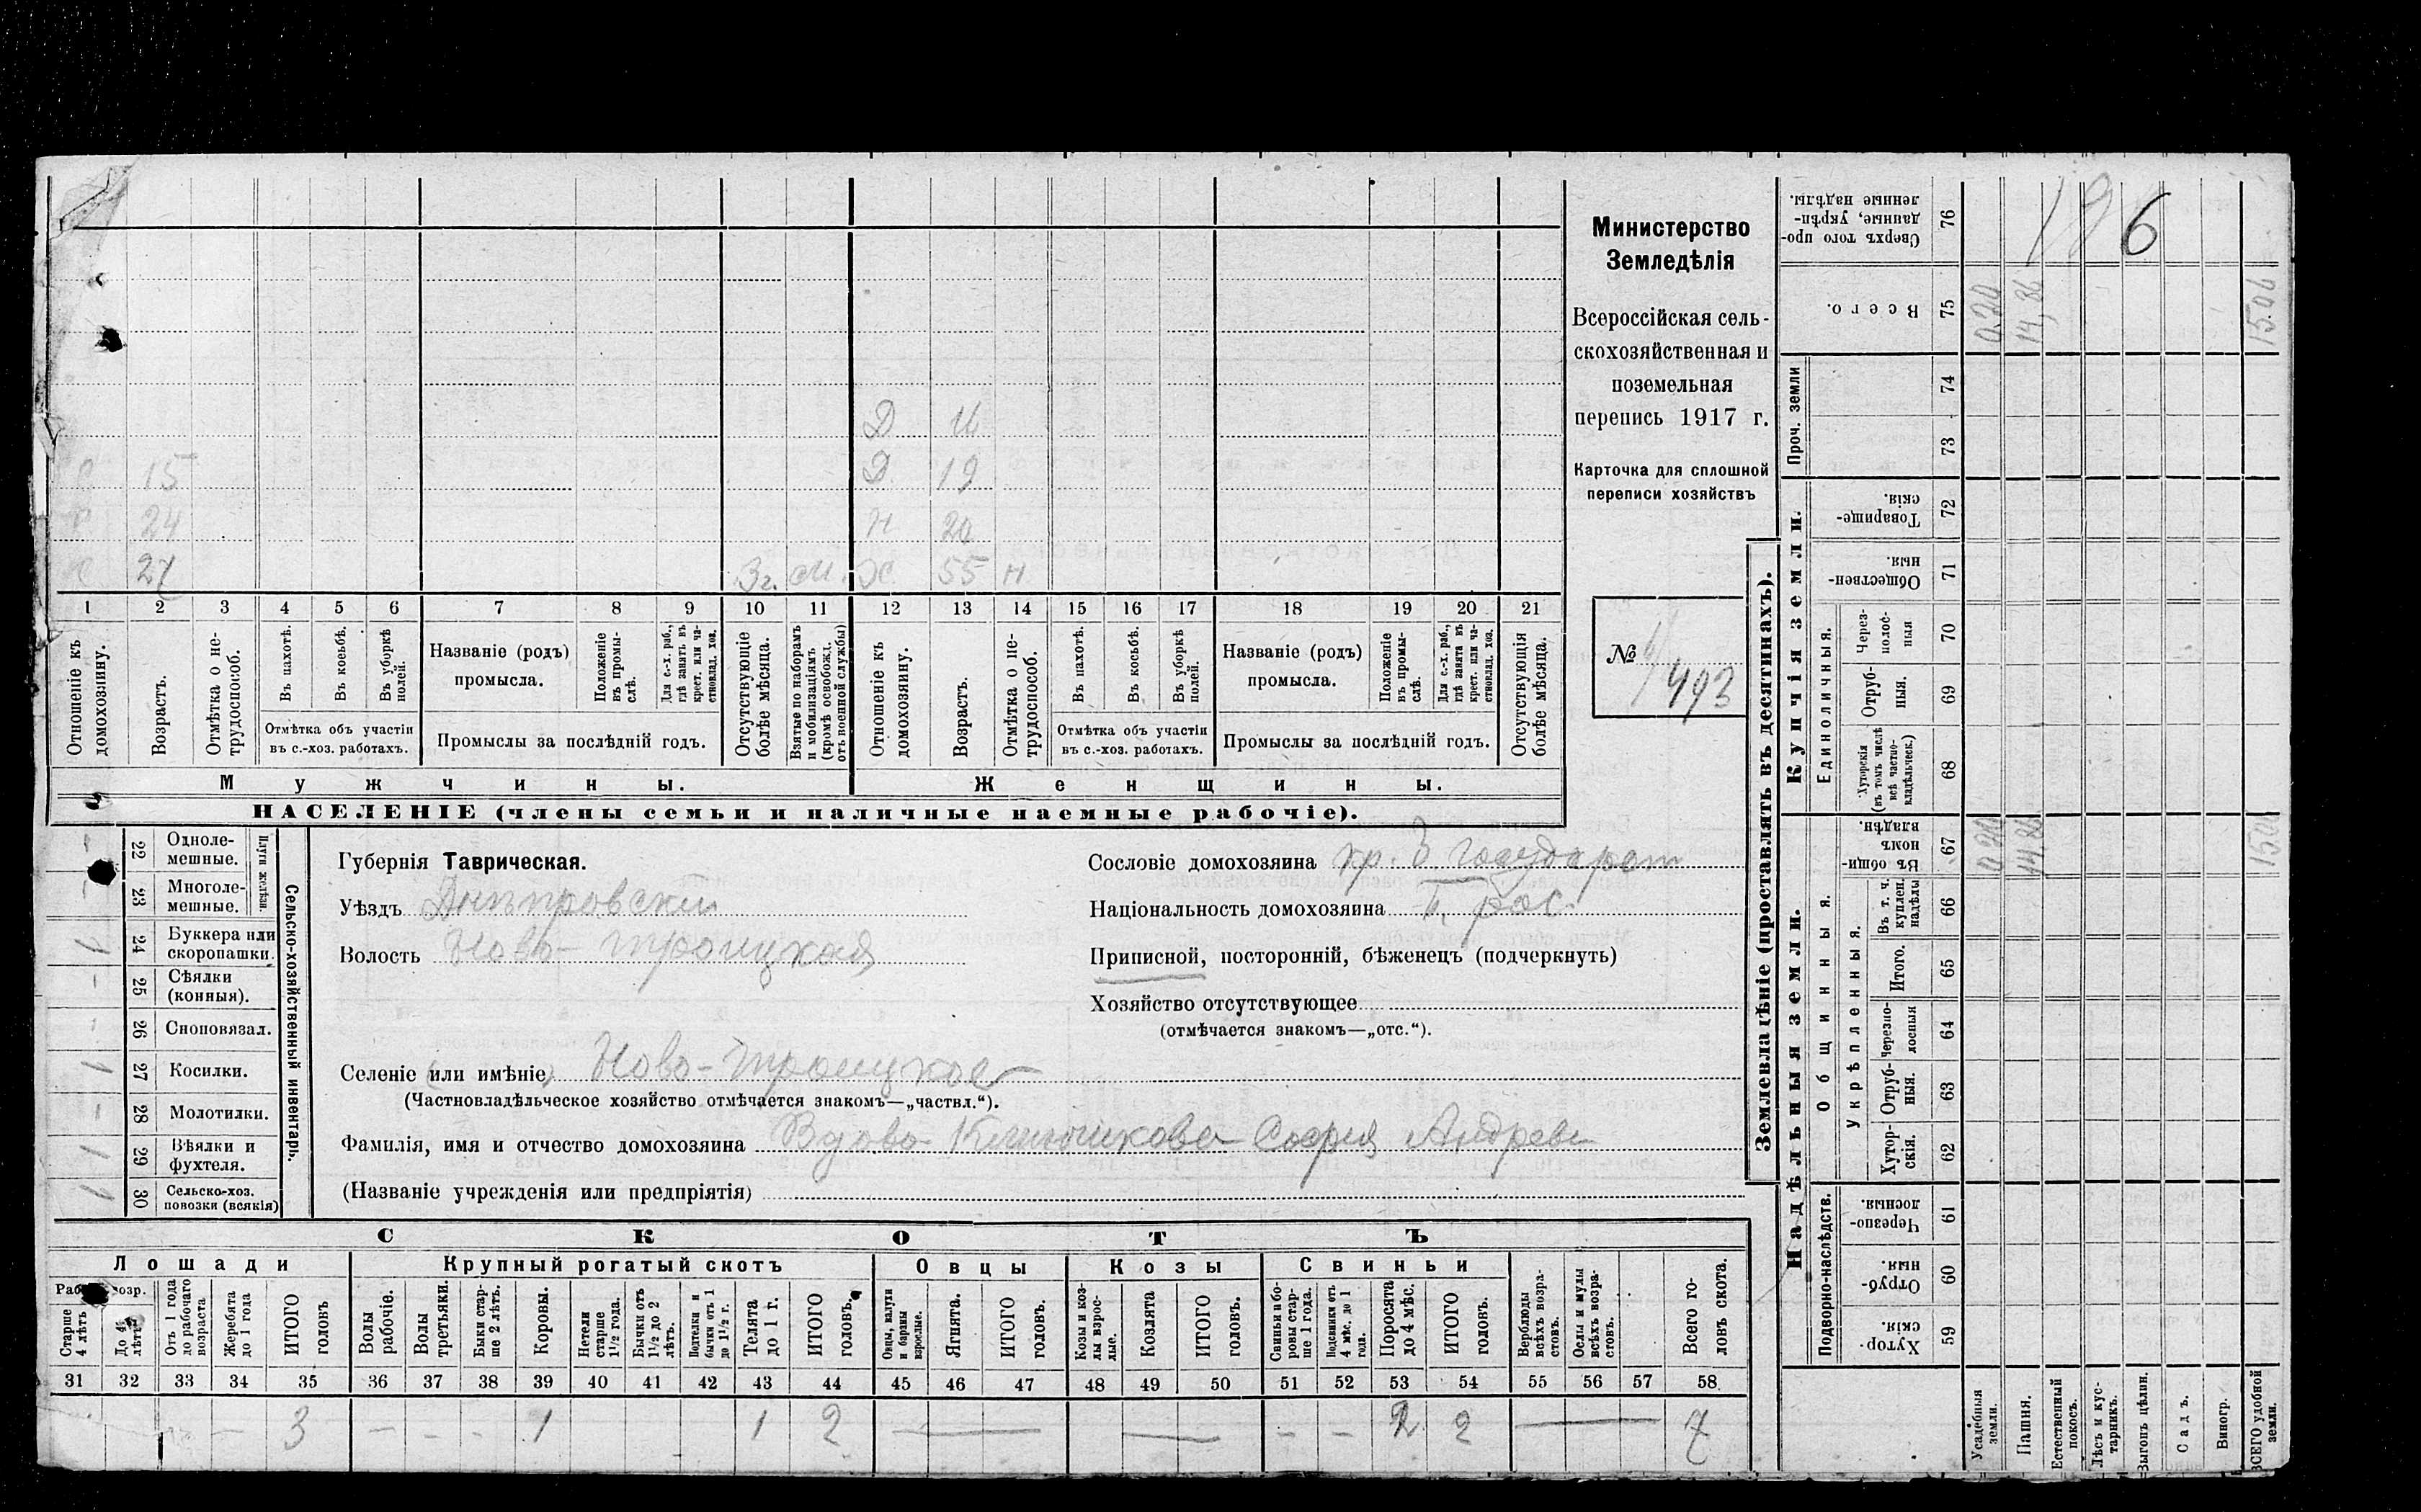 Министерство
Земледѣлія
Всероссійская сель-
скохозяйственная и
поземельная
перепись 1917 г.
Карточка для сплошной
переписи хозяйствъ
№ 493
196
Д
Д 19
15
24 Н 20
27 3 г. 55 н
1 2 3 4 5 6 7 8 9 10 11 12 13 14 15 16 17 18 19 20 21
Отношеніе къ домохозяину.
Возрастъ.
Отмѣтка о не-трудоспособ.
Въ пахотѣ.
Въ косьбѣ.
Въ уборкѣ полей.
Отмѣтка объ участіи въ с.-хоз. работахъ.
Названіе (родъ) промысла.
Положеніе въ промы-слѣ.
Для с.-х. раб., гдѣ занятъ въ крест. или ча-стновлад. хоз.
Промыслы за послѣдній годъ.
Отсутствующіе болѣе мѣсяца.
Взятые по наборамъ и мобилизаціямъ (кромѣ освобожд. отъ военной службы)
Отношеніе къ домохозяину.
Возрастъ.
Отмѣтка о не-трудоспособ.
Въ пахотѣ.
Въ косьбѣ.
Въ уборкѣ полей.
Отмѣтка объ участіи въ с.-хоз. работахъ.
Названіе (родъ) промысла.
Положеніе въ промы-слѣ.
Для с.-х. раб., гдѣ занята въ крест. или ча-стновлад. хоз.
Промыслы за послѣдній годъ.
Отсутствующія болѣе мѣсяца.
Мужчины. Женщины.
НАСЕЛЕНІЕ (члены семьи и наличные наемные рабочіе).
Сельско-хозяйственный инвентарь.
Плуги желѣзн.
22 Одноле-мешные.
23 Многоле-мешные.
24 Буккера или скоропашки.
25 Сѣялки (конныя).
26 Сноповязал.
27 Косилки.
28 Молотилки.
29 Вѣялки и фухтеля.
30 Сельско-хоз. повозки (всякія)
Губернія Таврическая.
Уѣздъ Днѣпровскій
Волость Ново-Троицкая
Селеніе (или имѣніе) Ново-Троицкое
(Частновладѣльческое хозяйство отмѣчается знакомъ—„частвл.“).
Фамилія, имя и отчество домохозяина Вдова Софія Андреев
(Названіе учрежденія или предпріятія)
Сословіе домохозяина кр.
Національность домохозяина рос.
Приписной, посторонній, бѣженецъ (подчеркнуть)
Хозяйство отсутствующее
(отмѣчается знакомъ—„отс.“).
СКОТЪ
Лошади Крупный рогатый скотъ Овцы Козы Свиньи
Старше 4 лѣтъ
До 4 лѣтъ
Отъ 1 года до рабочаго возраста
Жеребята до 1 года
ИТОГО головъ
Волы рабочіе.
Волы третьяки.
Быки стар-ше 2 лѣтъ.
Коровы.
Нетели старше 1½ года.
Бычки отъ 1½ до 2 лѣтъ.
Подтелки и бычки отъ 1 до 1½ г.
Телята до 1 г.
ИТОГО головъ.
Овцы, валухи и бараны взрослые.
Ягнята.
ИТОГО головъ.
Козы и коз-лы взрос-лые.
Козлята
ИТОГО головъ.
Свиньи и бо-ровы стар-ше 1 года.
Подсвинки отъ 4 мѣс. до 1 года.
Поросята до 4 мѣс.
ИТОГО головъ.
Верблюды всѣхъ возра-стовъ.
Ослы и мулы всѣхъ возра-стовъ.
Всего го-ловъ скота.
31 32 33 34 35 36 37 38 39 40 41 42 43 44 45 46 47 48 49 50 51 52 53 54 55 56 57 58
3 1 1 2 2 2 7
Землевладѣніе (проставлять въ десятинахъ).
Надѣльныя земли. Купчія земли. Проч. земли
Подворно-наслѣдств.
Общинныя.
Укрѣпленныя.
Единоличныя.
59 Хутор-скія.
60 Отруб-ныя.
61 Черезпо-лосныя.
62 Хутор-скія.
63 Отруб-ныя.
64 Черезпо-лосныя
65 Итого.
66 Въ т. ч. куплен. надѣлы
67 Въ общи-номъ владѣн.
68 Хуторскія (въ томъ числѣ всѣ частно-владѣльческ.)
69 Отруб-ныя.
70 Через-полос-ныя
71 Обществен-ныя.
72 Товарище-скія.
73
74
75 Всего.
76 Сверхъ того про-данные, укрѣп-ленные надѣлы.
Усадебныя земли.
Пашня.
Естественный покосъ.
Лѣсъ и кус-тарникъ.
Выгонъ цѣлин.
Садъ.
Виногр.
ВСЕГО удобной земли.
0.20 14,86 15.06
0.20 14.86